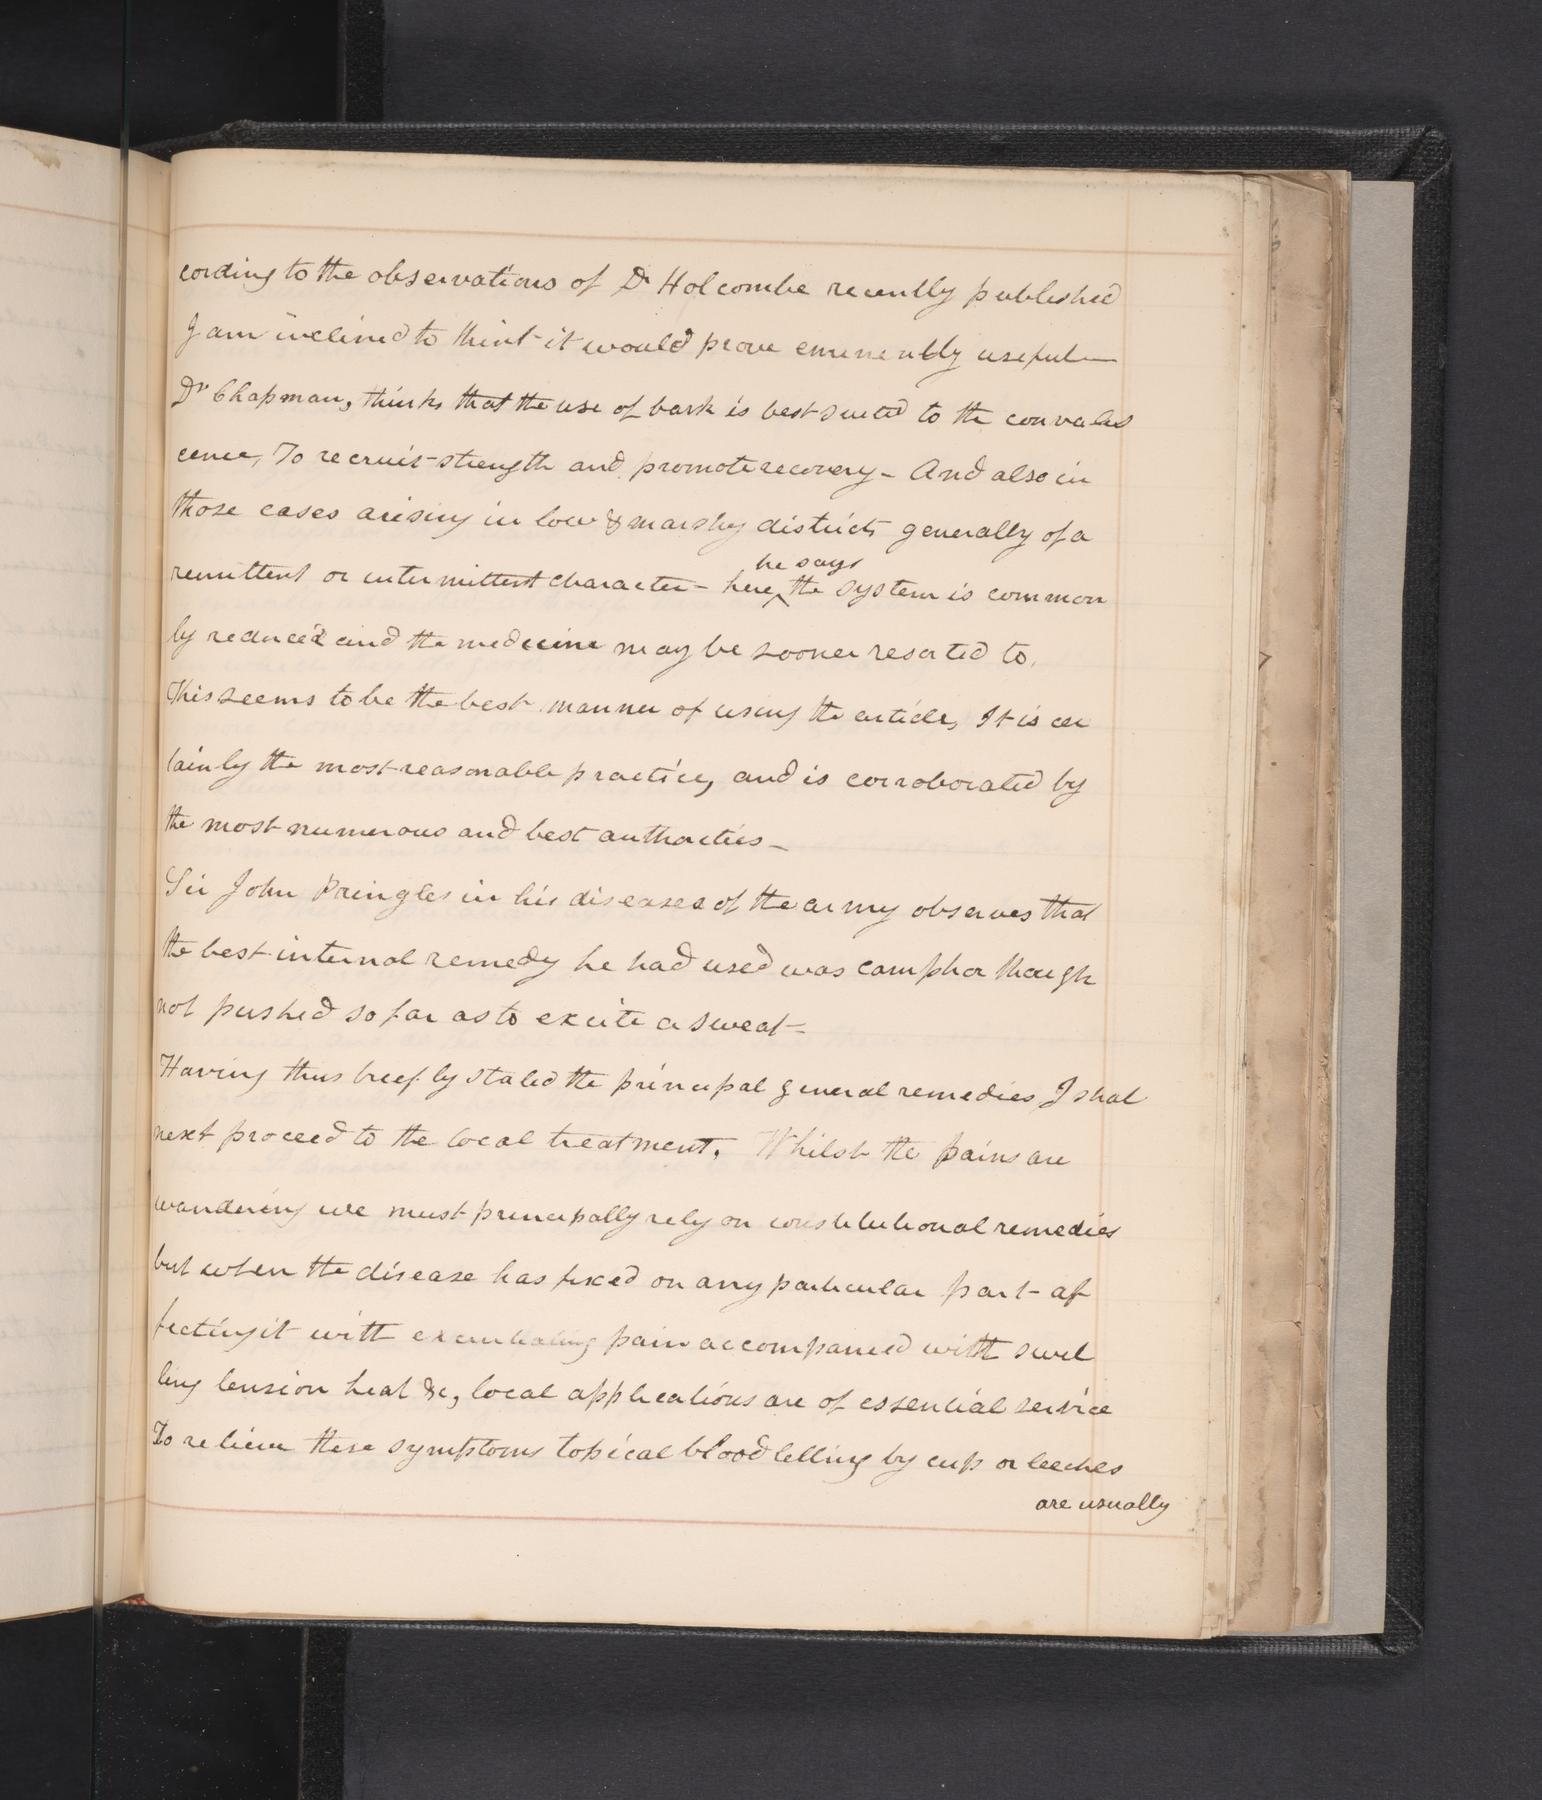 cording to the observations of Dr Holcombe recently published
I am inclined to think it would prove eminently useful—
Dr Chapman, thinks that the use of bark is best suited to the convales
cence, To recruit strength and promote recovery – And also in
those cases arising in low & marshy districts generally of a
remittent or intermittent character – here ^ the system is common
he says
ly reduced and the medicine may be sooner resorted to.
This seems to be the best manner of using the article, It is cer
tainly the most reasonable practice, and is corroborated by
the most numerous and best authorities –
Sir John Pringles in his diseases of the army observes that
the best internal remedy he had used was camphor though
not pushed so far as to excite a sweat –
Having thus briefly stated the principal general remedies I shal
next proceed to the local treatment. Whilst the pains are
wandering we must principally rely on constitutional remedies
but when the disease has fixed on any particular part af
fecting it with excruciating pain accompanied with swel
ling tension heat &c, local applications are of essential service
To relieve these symptoms topical blood letting by cup or leeches
are usually